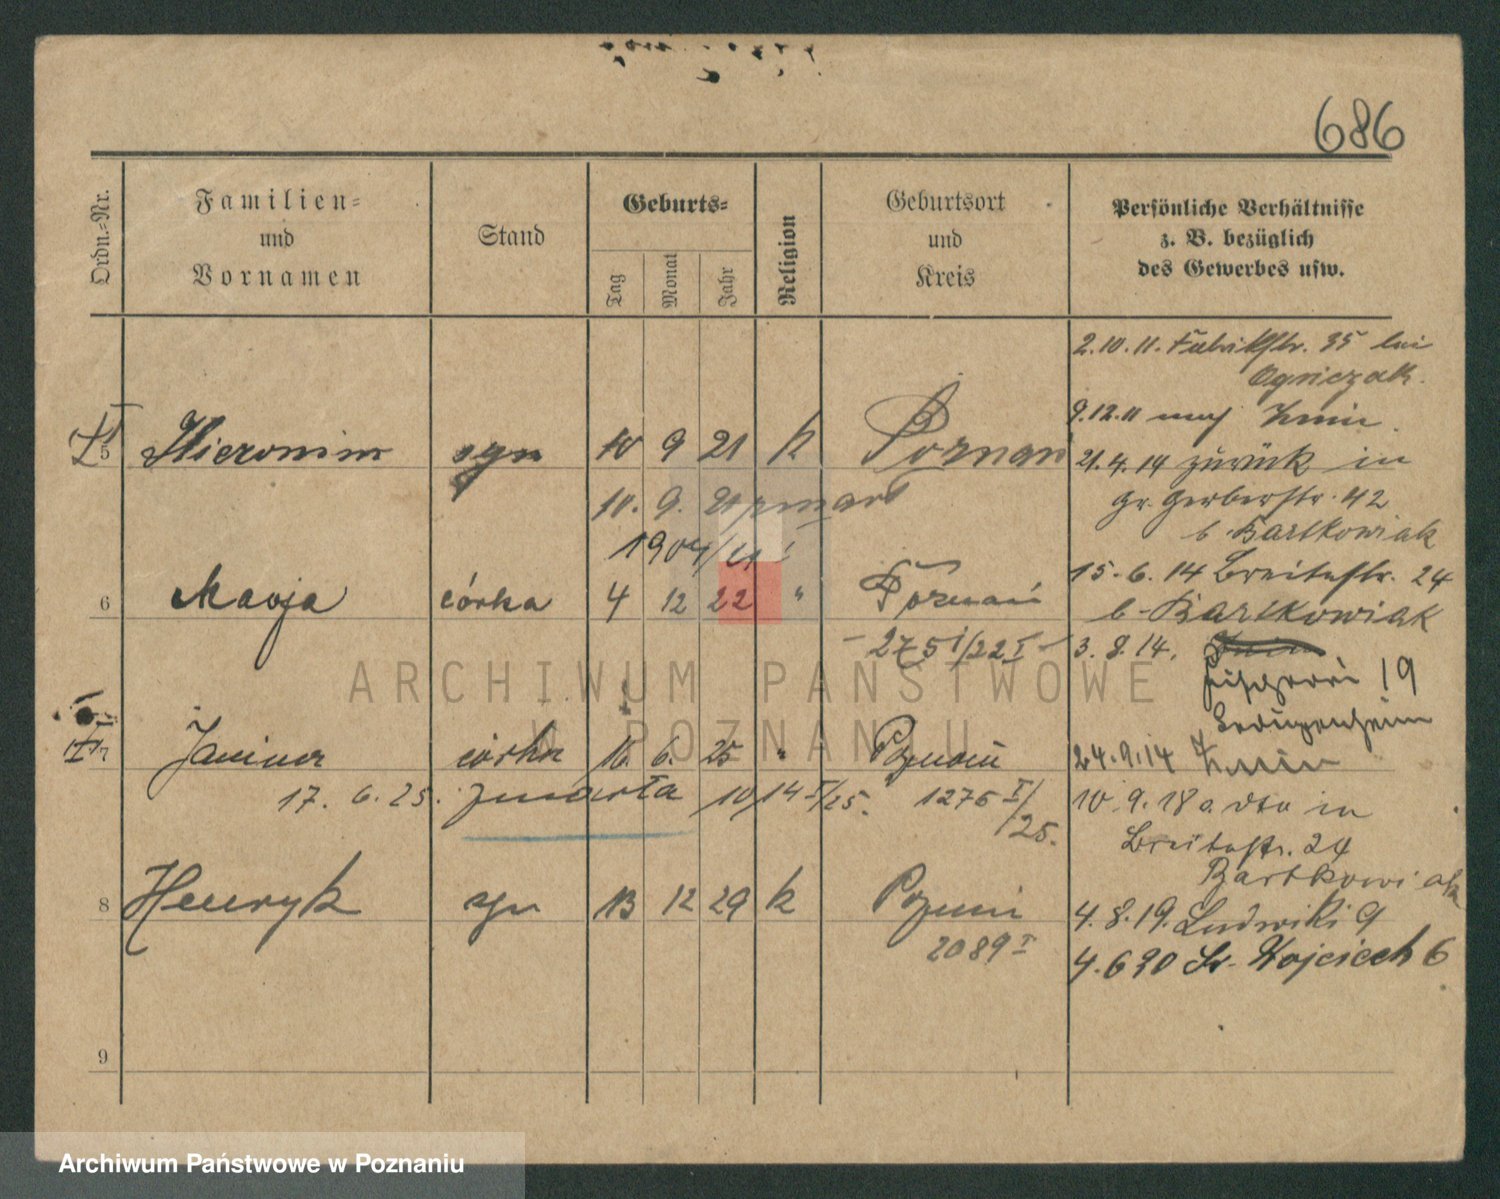 686
Ordn.-Nr.
Familien-
und
Vornamen
Stand
Geburts-
Tag
Monat
Jahr
Religion
Geburtsort
und
Kreis
Persönliche Verhältnisse
z. B. bezüglich
des Gewerbes usw.
5 Hieronim syn 10 9 21 k Poznań
10. 9. 21 zmarł
1904/21
6 Marja córka 4 12 22 " Poznań
- 275 I/22 I -
7 Janina córka 16. 6. 25 " Poznań
17. 6. 25. zmarła 10/14 I/25. 1276 I/
25.
8 Henryk syn 13 12 29 k Poznań
2089 I
9
2.10.11. Fabrikstr. 35 bei
Agniczak.
9.12.11 nach Znin.
21.4.14 zurück in
Gr. Gerberstr. 42
b. Bartkowiak
15.6.14 Breitestr. 24
b. Bartkowiak
3.8.14.
Fischerei 19
24.9.14 Znin
10.9.18 a. dto in
Breitestr. 24
Bartkowiak
4.8.19. Ludwiki 9
4.6 20 Św. Wojciech 6
ARCHIWUM PAŃSTWOWE
W POZNANIU
Archiwum Państwowe w Poznaniu